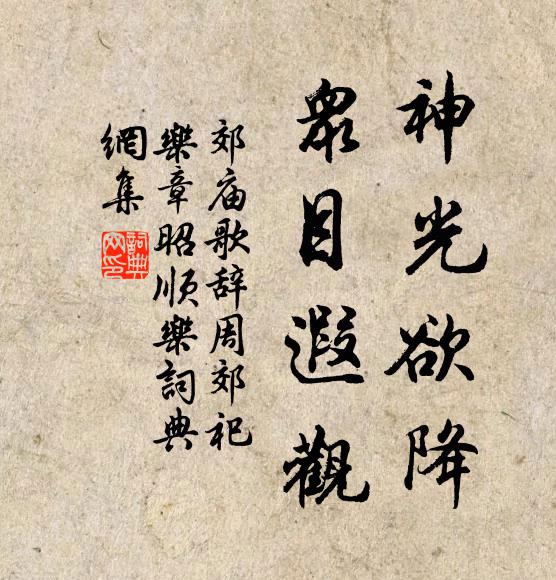 神光欲降
眾目遐觀
郊庙歌辞周郊祀
樂章昭順樂詞典
網集
詞典
网印